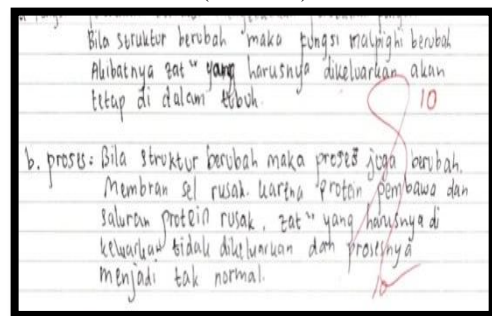 Bila struktur berubah maka fungsi malpighi berubah
Akibatnya zat" yang harusnya dikeluarkan akan
tetap di dalam tubuh.
10
b. proses : Bila struktur berubah maka proses juga berubah.
Membran sel rusak. karena protein pembawa dan
saluran protein rusak, zat" yang harusnya di
keluarkan tidak dikeluarkan dan prosesnya
menjadi tak normal.
10